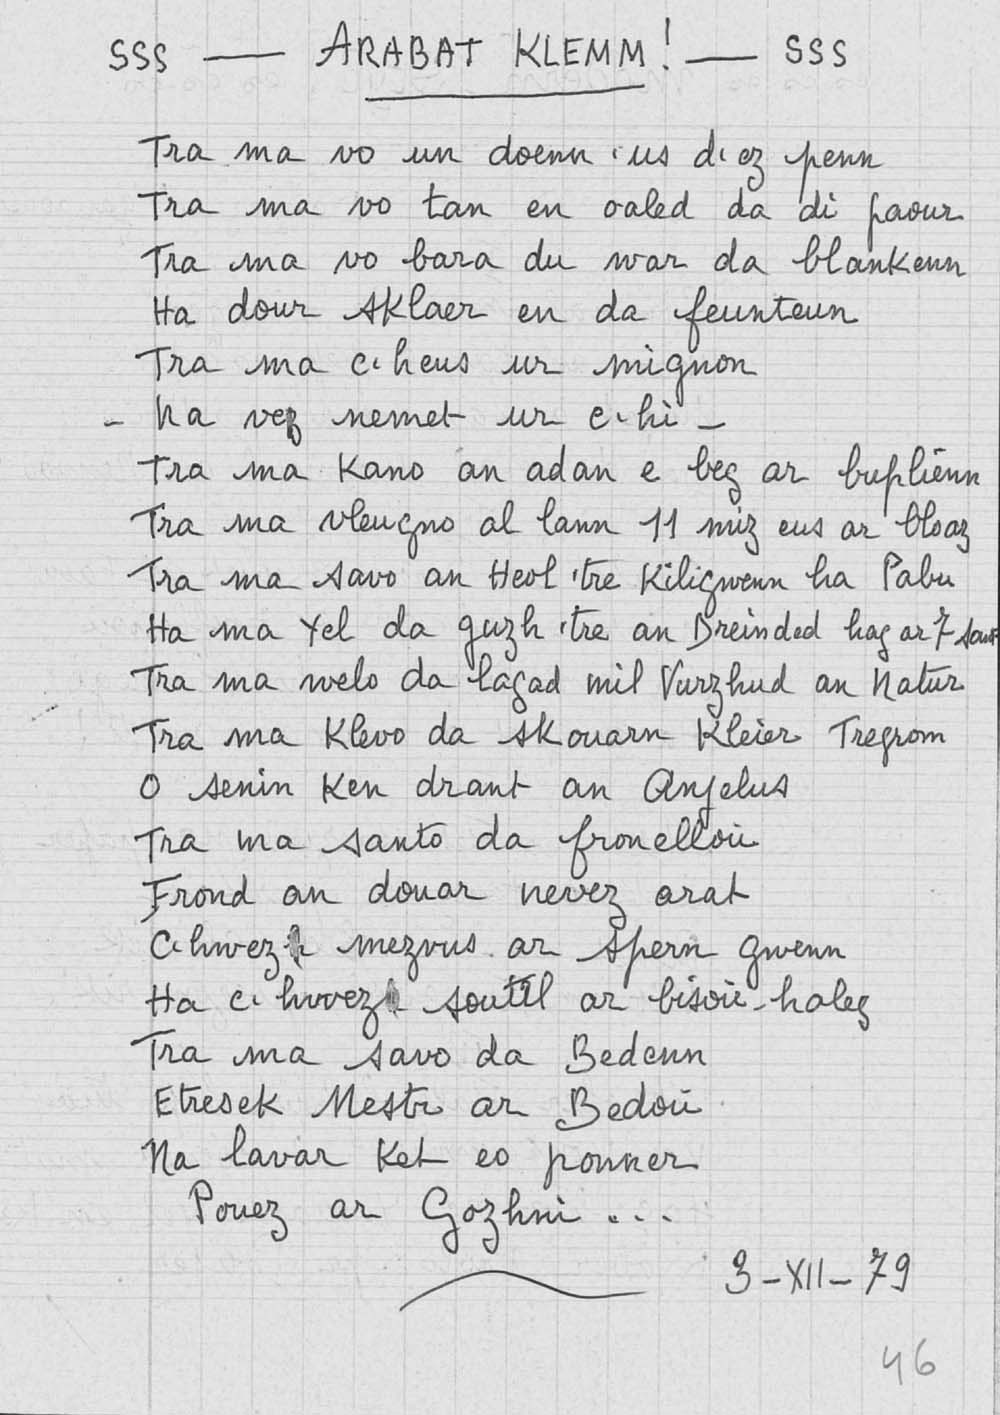 SSS — ARABAT KLEMM! — SSS
Tra ma vo un doenn 'us d'ez penn
Tra ma vo tan en oaled da di paour
Tra ma vo bara du war da blankenn
Ha dour sklaer en da feunteun
Tra ma c'heus ur mignon
- Na vez nemet ur c'hi -
Tra ma Kano an adan e beg ar buplienn
Tra ma vleugno al lann 11 miz eus ar bloaz
Tra ma savo an Heol 'tre Kiligwenn ha Pabu
Ha ma Yel da guzh 'tre an Dreinded hag ar 7 sant
Tra ma welo da lagad mil Vurzhud an Natur
Tra ma Klevo da skouarn Kleier Tregrom
O senin Ken drant an Angelus
Tra ma santo da fronelloù
Frond an douar nevez arat
C'hwezh mezvus ar spern gwenn
Ha c'hwezh soutil ar bisoù-haleg
Tra ma savo da Bedenn
Etresek Mestr ar Bedoù
Na lavar Ket eo ponner
Pouez ar Gozhni ...
3-XII-79
46